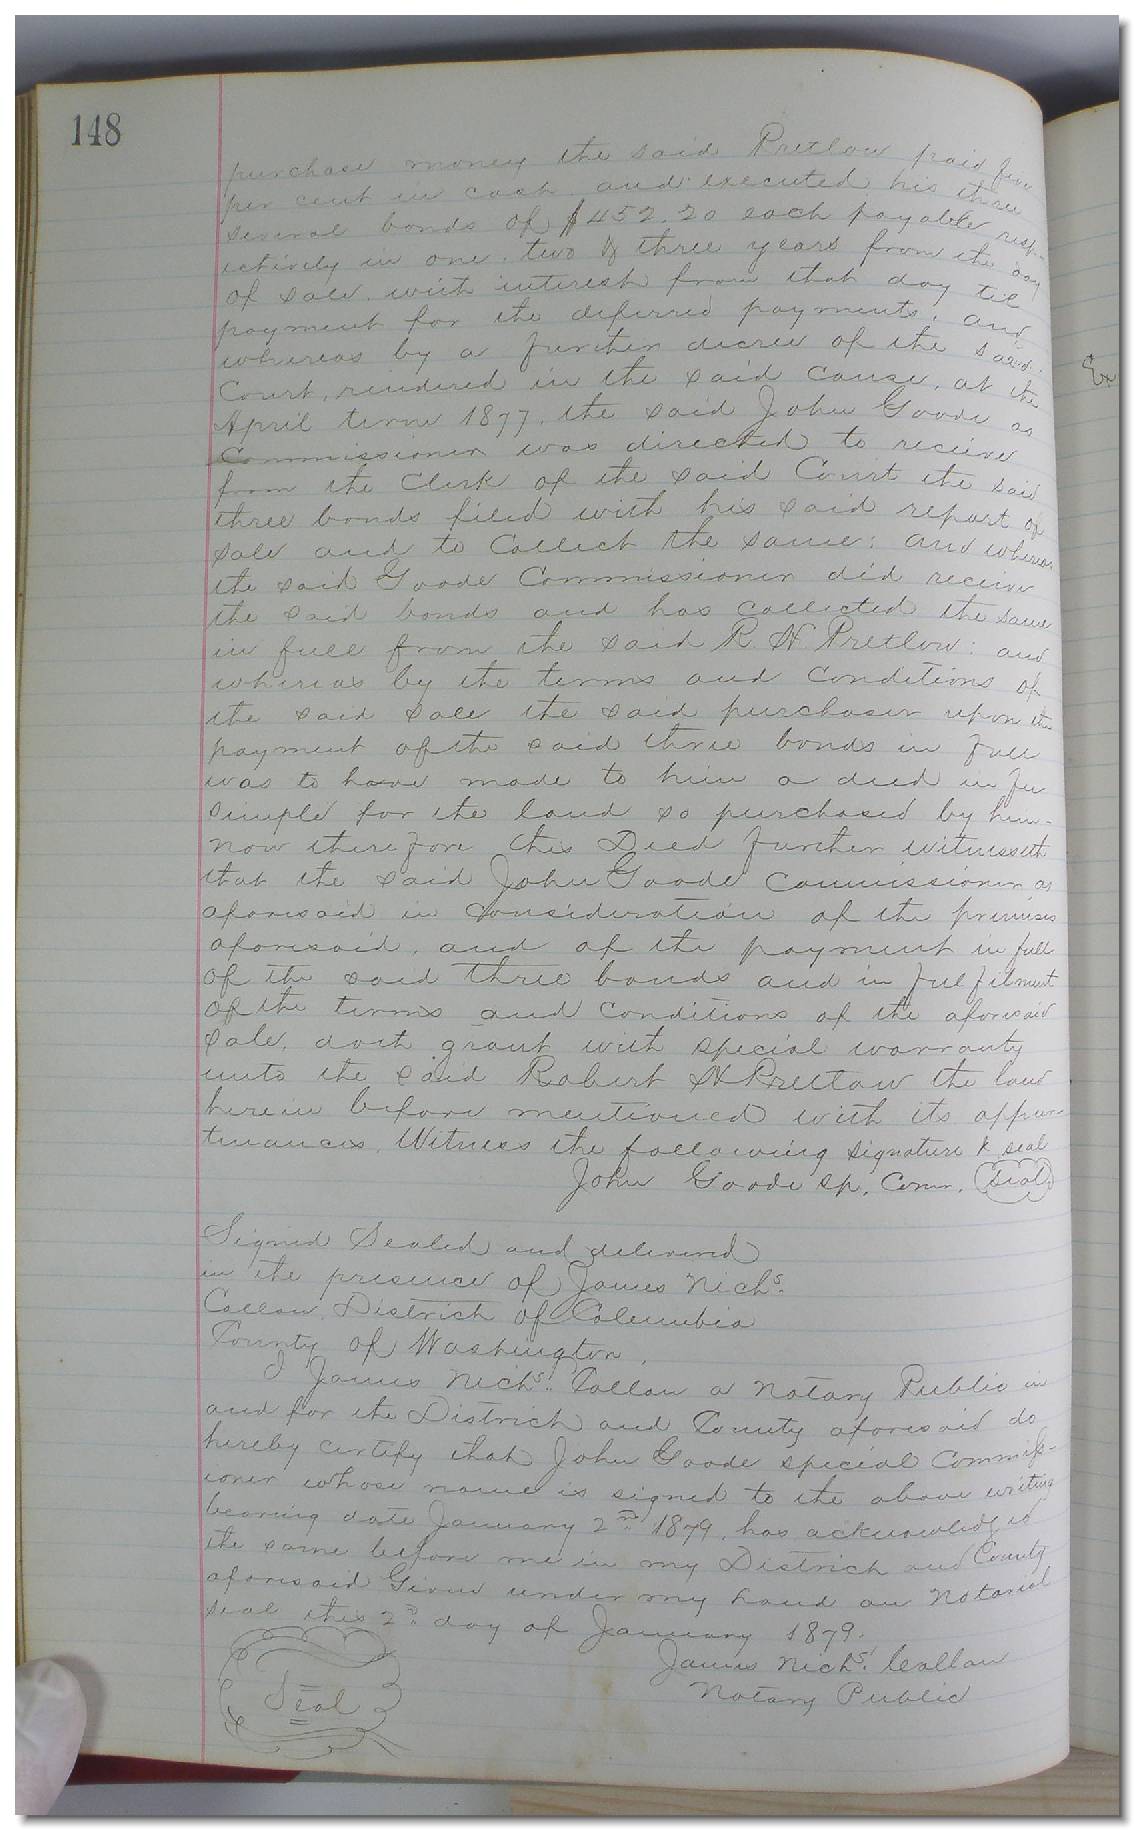 148
purchase money the said Pretlow paid five
per cent in cash and executed his three
several bonds of $452.20 each payable resp-
ectively in one, two & three years from the day
of sale with interest from that day til
payment for the deferred payments, and
whereas by a further decree of the said
Court, rendered in the said cause, at the
April term 1877, the said John Goode as
Commissioner was directed to receive
from the Clerk of the said Court the said
three bonds filed with his said report of
sale and to Collect the same: and whereas
the said Goode Commissioner did receive
the said bonds and has collected the same
in full from the said R H Pretlow: and
whereas by the terms and Conditions of
the said sale the said purchaser upon the
payment of the said three bonds in full
was to have made to him a deed in fee
simple for the land so purchased by him-
now therefore this Deed further witnesseth
that the said John Goode Commissioner as
aforesaid in Consideration of the premises
aforesaid, and of the payment in full
of the said three bonds and in fulfilment
of the terms and conditions of the aforesaid
sale, doth grant with special warranty
unto the said Robert H Pretlow the land
herein before mentioned with its appur-
tenances. Witness the following signature & seal
John Goode sp. Comr. Seal
Signed Sealed and delivered
in the presence of James Nichs.
Callan District of Columbia
County of Washington,
I James Nichs. Callan a Notary Public in
and for the District and County aforesaid do
hereby certify that John Goode special Commiss-
ioner whose name is signed to the above writing
bearing date January 2nd 1879, has acknowledged
the same before me in my District and County
aforesaid Given under my hand an Notarial
seal this 2d day of January 1879.
James Nichs. Callan
Notary Public
Seal
Ex